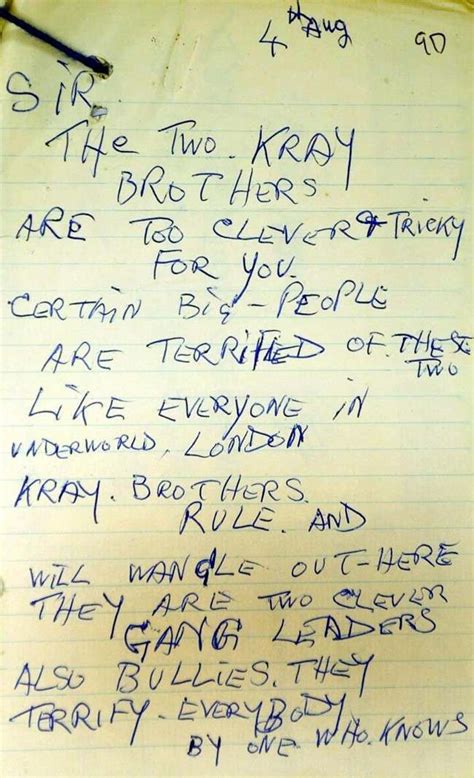 4th Aug 90
SIR.
THE TWO. KRAY
BROTHERS
ARE TOO CLEVER & TRICKY
FOR YOU.
CERTAIN BIG-PEOPLE
ARE TERRIFIED OF. THESE
TWO
LIKE EVERYONE IN
UNDERWORLD, LONDON
KRAY. BROTHERS.
RULE. AND
WILL WANGLE OUT-HERE
THEY ARE TWO CLEVER
GANG LEADERS
ALSO BULLIES. THEY
TERRIFY. EVERYBODY
BY ONE WHO. KNOWS